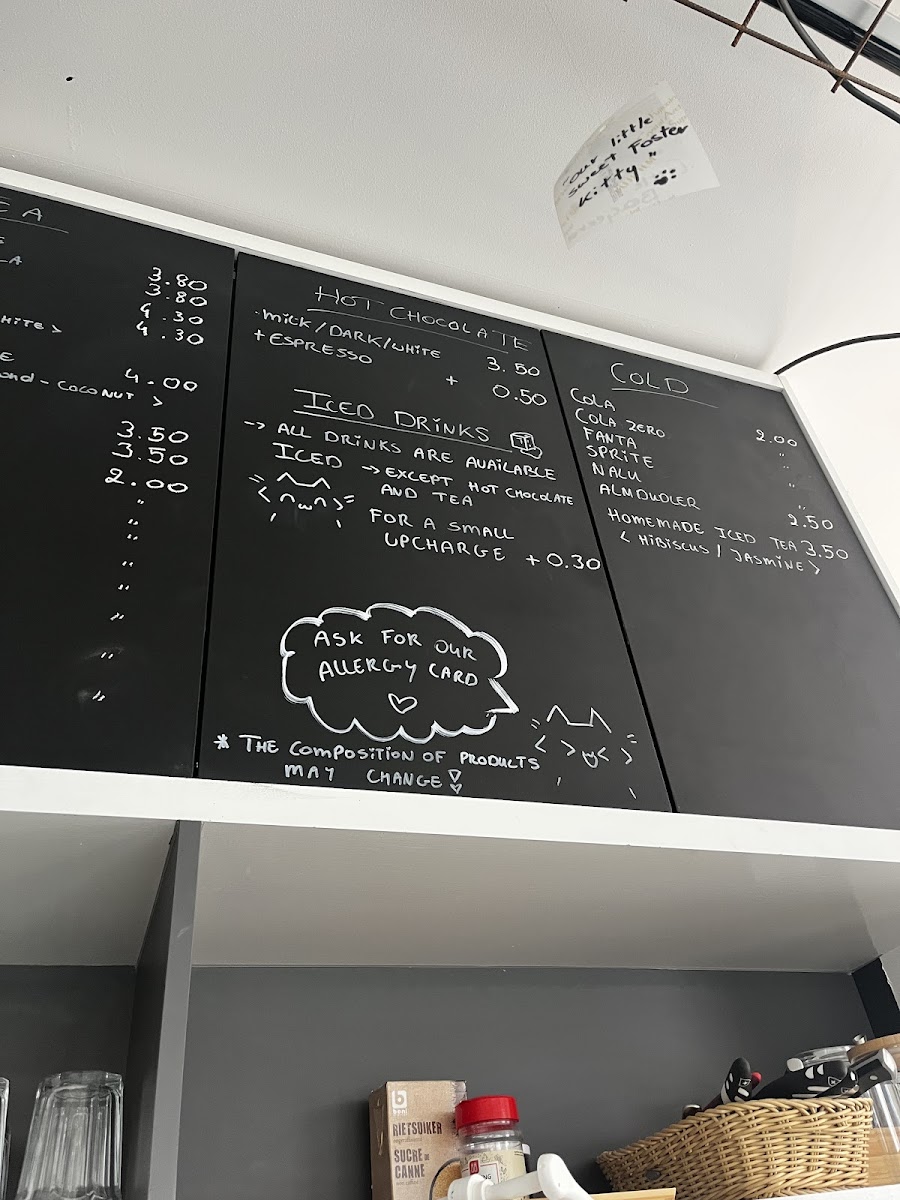 "our little
sweet Foster
Kitty"
EA
LA
3.80
3.80
4.30
HITE >
4.30
E
4.00
OND - COCONUT >
3.50
3.50
2.00
"
"
"
"
"
"
"
"
HOT CHOCOLATE
· MILK / DARK / WHITE 3.50
+ ESPRESSO + 0.50
ICED DRINKS
-> ALL DRINKS ARE AVAILABLE
ICED -> EXCEPT HOT CHOCOLATE
AND TEA
FOR A SMALL
UPCHARGE +0.30
ASK FOR OUR
ALLERGY CARD
* THE COMPOSITION OF PRODUCTS
MAY CHANGE!
COLD
COLA 2.00
COLA ZERO "
FANTA "
SPRITE "
NALU 2.50
ALMDUDLER 3.50
HOMEMADE ICED TEA
< HIBISCUS / JASMINE >
b
boni
RIETSUIKER
SUCRE DE
CANNE